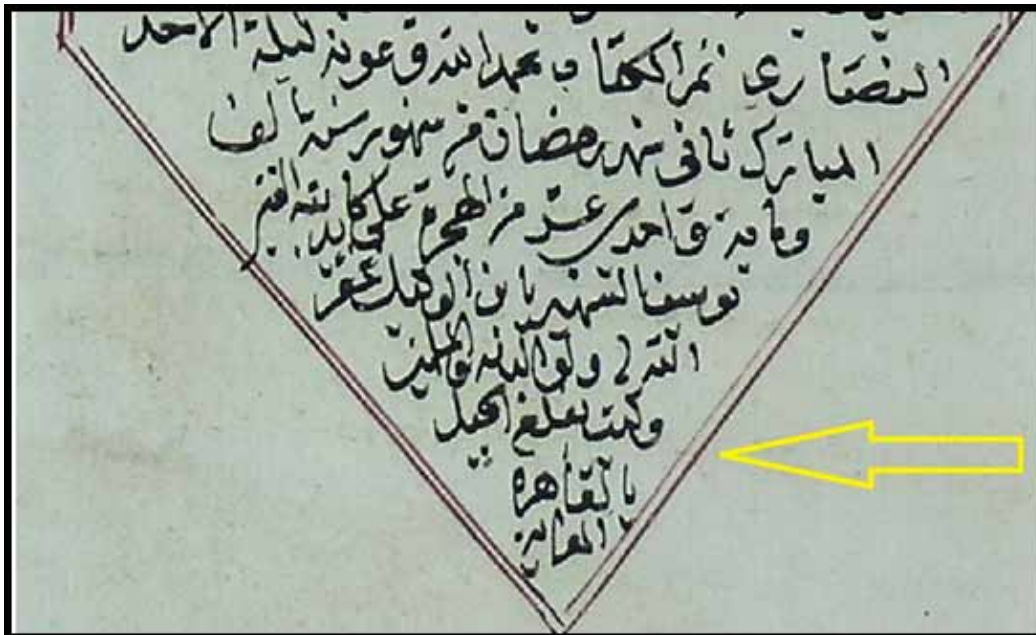 النصارى تم الكتاب بحمد الله وعونه ليلة الاحد
المبارك ثانى شهر رمضان من شهور سنة الف
ومايه واحدى عشر من الهجرة على كاتبه الفقير
يوسف الشهير بابن الوكيل غفر
الله له ولوالديه وللمسلمين
وكتب بقلعة الجبل
بالقاهره